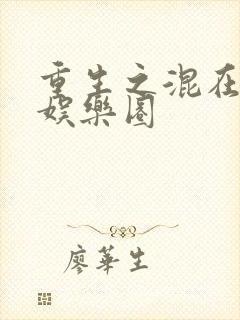 重生之混在
娱樂圈
廖華生